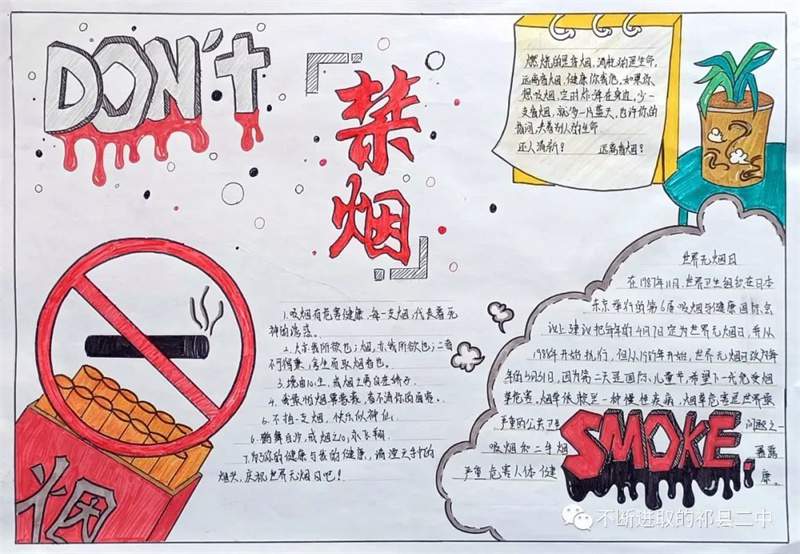 DON'T
禁
烟
燃烧的是香烟，消耗的是生命。
远离香烟，健康你我他。如果你
想吸烟，定时炸弹在身边。少一
支香烟，就多一片蓝天。
还人清新？ 远离香烟？
世界无烟日
在1987年11月，世界卫生组织在日本
东京举行的第6届吸烟与健康国际会
议上建议把每年的4月7日定为世界无烟日，并从
1988年开始执行，但从1989年开始，世界无烟日改为每
年的5月31日，因为第二天是国际儿童节，希望下一代免受烟
草危害。烟草依赖是一种慢性疾病，烟草危害是世界最
严重的公共卫生 问题之一
吸烟和二手烟
严重危害人体健 康。
1.吸烟有危害健康，每一支烟，代表着死
神的
2. 我所欲也；烟，亦我所欲也；二者
不可得兼，舍生而取烟者也。
5.不拍一支烟，快乐似神仙。
7.为了你的健康与我的健康，请熄灭手中的
烟火，庆祝世界无烟日吧！
SMOKE
烟
不断进取的祁县二中